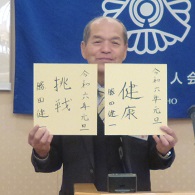 令和六年元旦
健康
勝田
令和六年元旦
挑戦
勝田
人会
HO